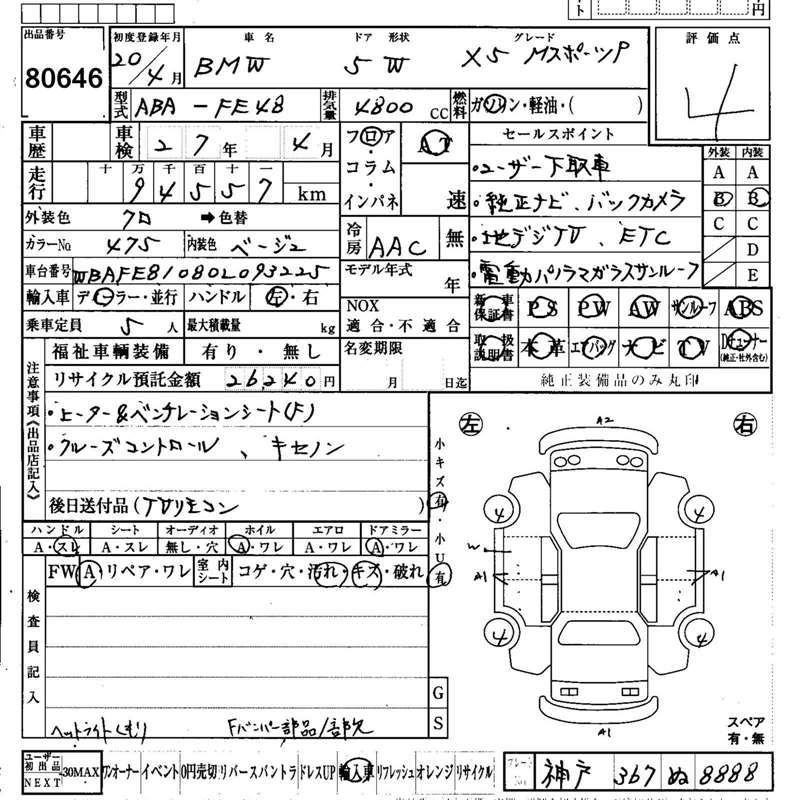 ト 円
出品番号 初度登録年月 車名 ドア 形状 グレード 評価点
80646 20/4月 BMW 5 W X5 MスポーツP 4
型式 ABA-FE48 排気量 4800 CC 燃料 ガソリン・軽油・( )
車歴 車検 27年 4月 フロア・コラム・インパネ AT 速 セールスポイント 外装 内装
走行 十万千百十 94557 km ・ユーザー下取車 A A
外装色 クロ ➡色替 ・純正ナビ、バックカメラ B B
カラーNo 475 内装色 ベージュ 冷房 AAC 無 ・地デジTV、ETC C C
車台番号 WBAFE81080L093225 モデル年式 年 ・電動パノラマガラスサンルーフ D
E
輸入車 ディーラー・並行 ハンドル 左・右 NOX 適合・不適合 新車保証書 PS PW AW サンルーフ ABS
乗車定員 5人 最大積載量 kg 取扱説明書 本革 エアバッグ ナビ TV Dチューナー(純正・社外含む)
福祉車輌装備 有り・無し 名変期限 月 日迄
リサイクル預託金額 26,240円 純正装備品のみ丸印
注意事項《出品店記入》
・ヒーター&ベンチレーションシート(F)
・クルーズコントロール、キセノン
後日送付品(TVリモコン )
小キズ有・小U有
左 右
A2
4 4
W
A1 A1
4 4
A1
ハンドル シート オーディオ ホイル エアロ ドアミラー
A・スレ A・スレ 無し・穴 A・ワレ A・ワレ A・ワレ
FW A リペア・ワレ 室内シート コゲ・穴・汚れ・キズ・破れ
検査員記入
G
S
ヘッドライトくもり Fバンパー部品/部欠
スペア
有・無
ユーザー初出品NEXT 30MAX ワンオーナー イベント 0円売切 リバースバントラ ドレスUP 輸入車 リフレッシュ オレンジ リサイクル
神戸 367 ぬ 8888